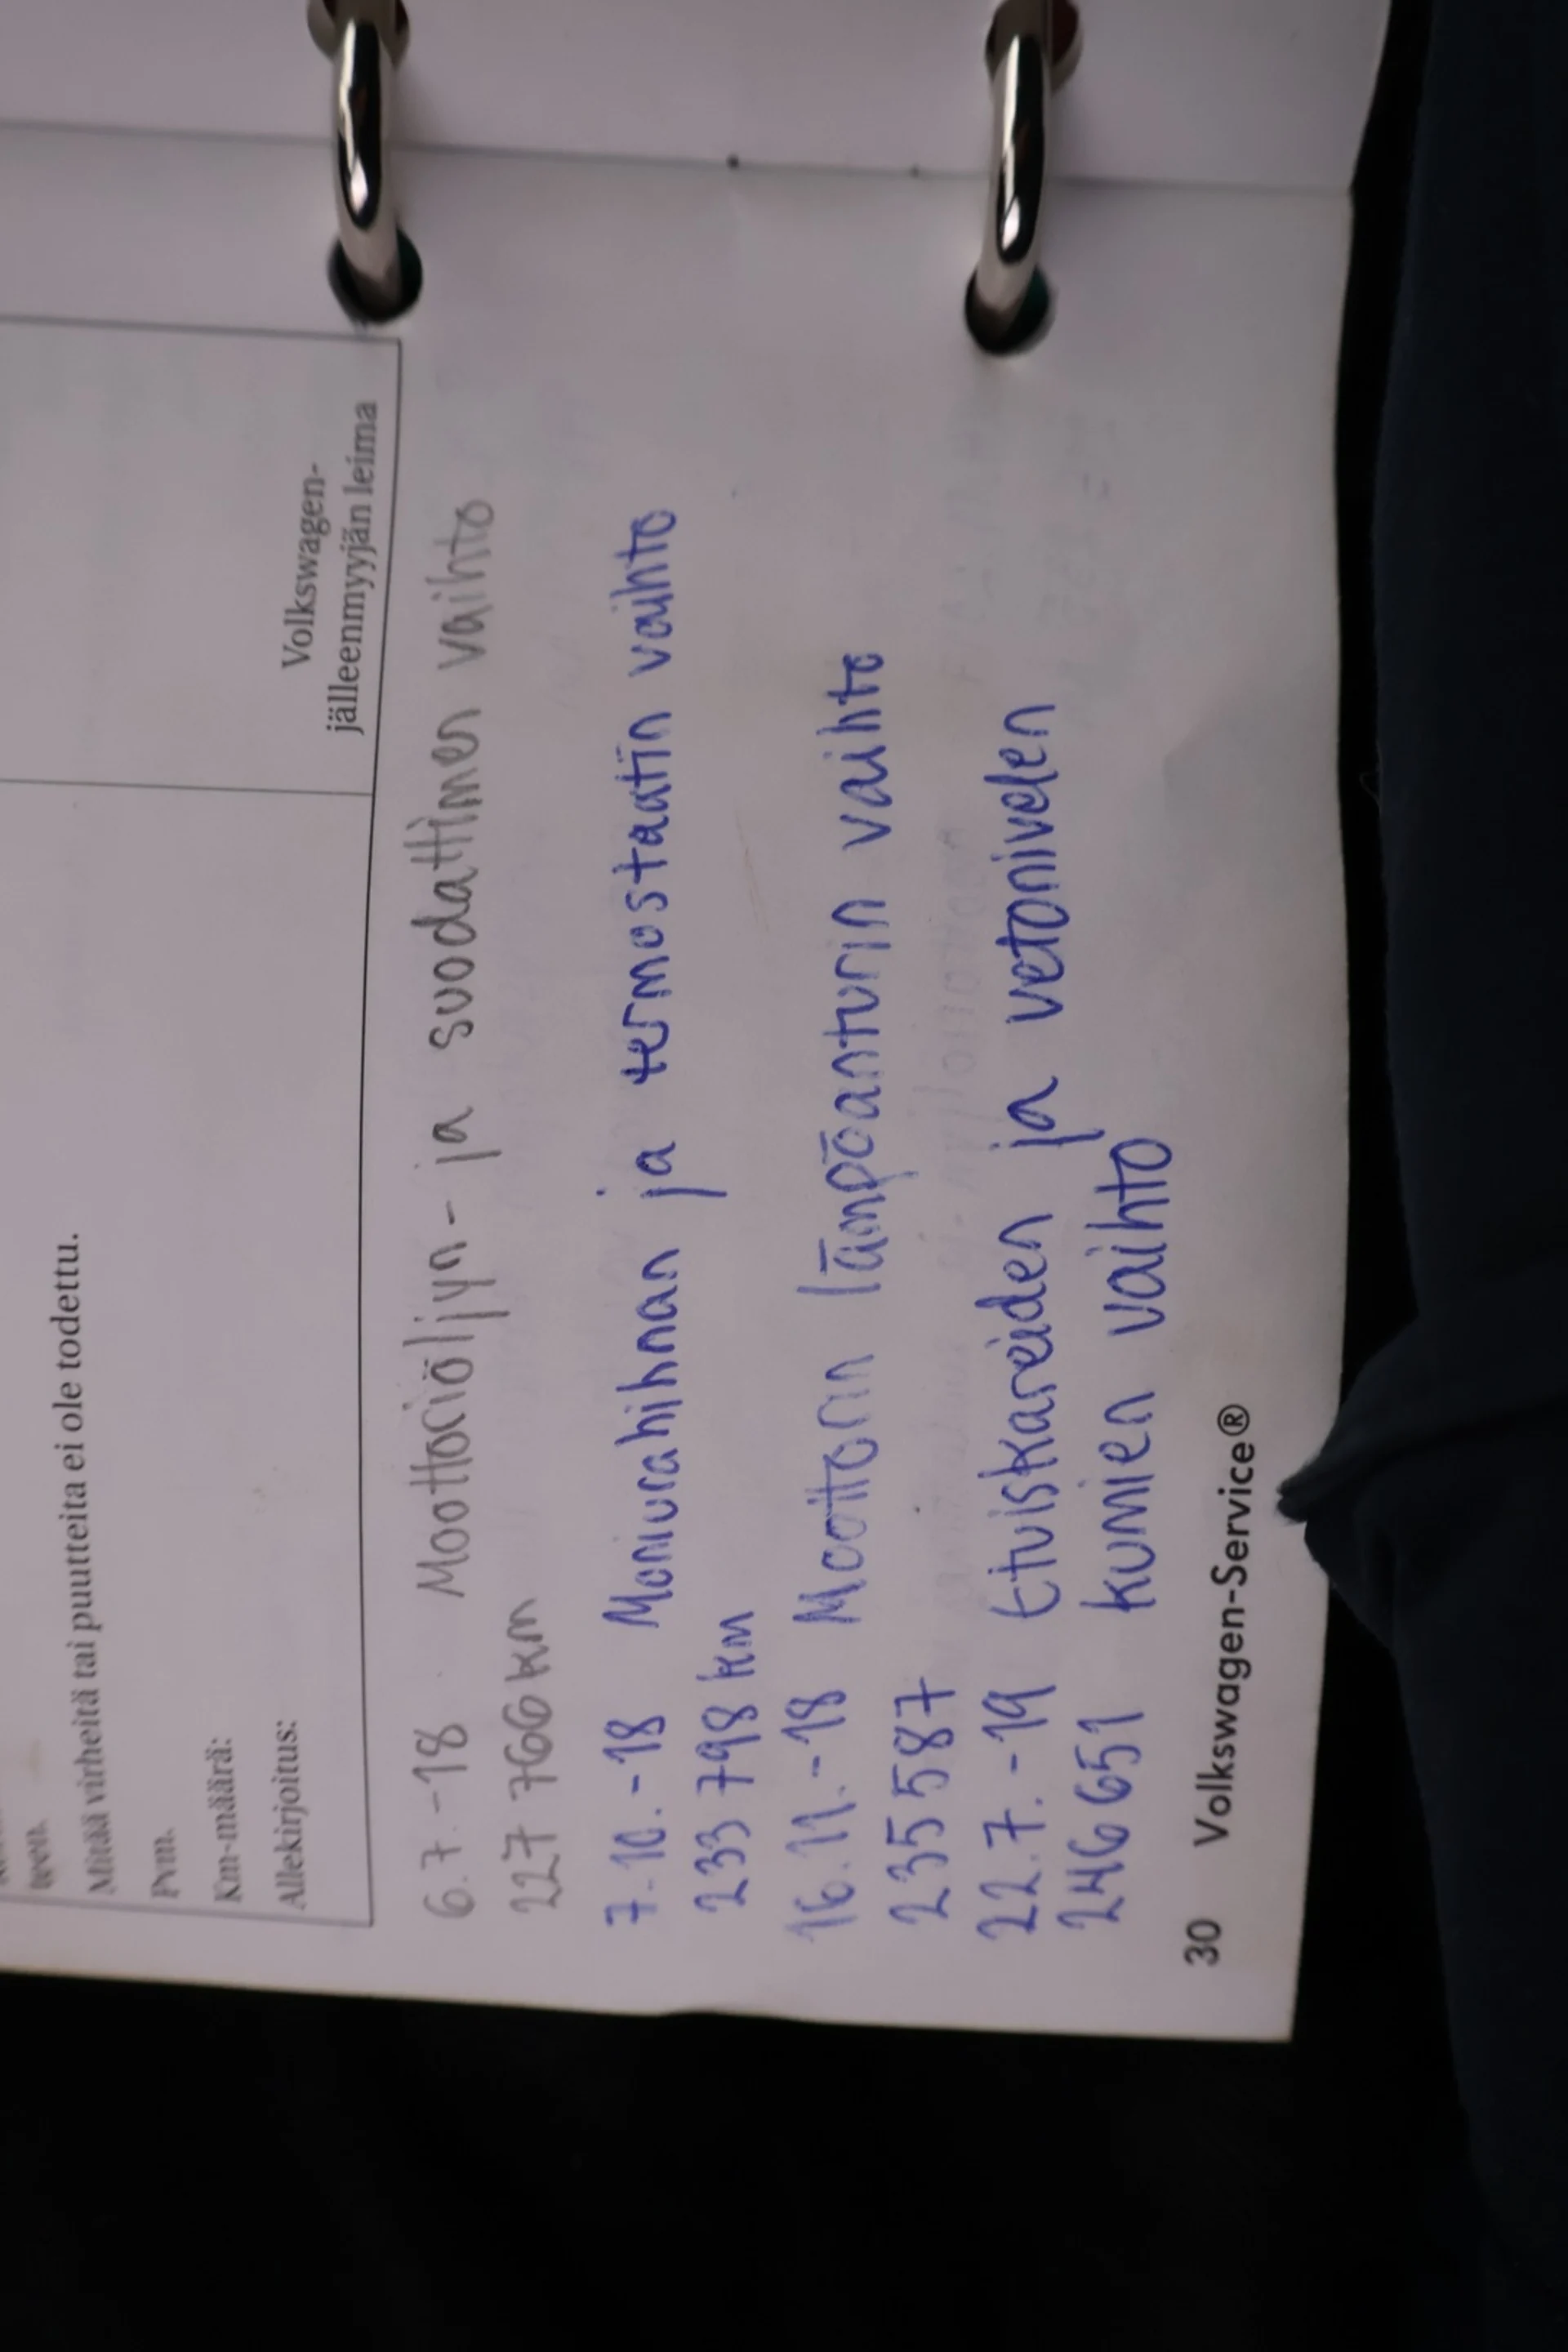 Mitää virheitä tai puutteita ei ole todettu.
Pvm.
Km-määrä:
Allekirjoitus:
Volkswagen-
jälleenmyyjän leima
6.7.-18 Moottoriöljyn- ja suodattimen vaihto
227 766 km
7.10.-18 Moniurahihnan ja termostaatin vaihto
233 798 km
16.11.-18 Moottorin lämpöanturin vaihto
235 587
22.7.-19 Etuiskareiden ja vetonivelen
246 651 kumien vaihto
30 Volkswagen-Service®